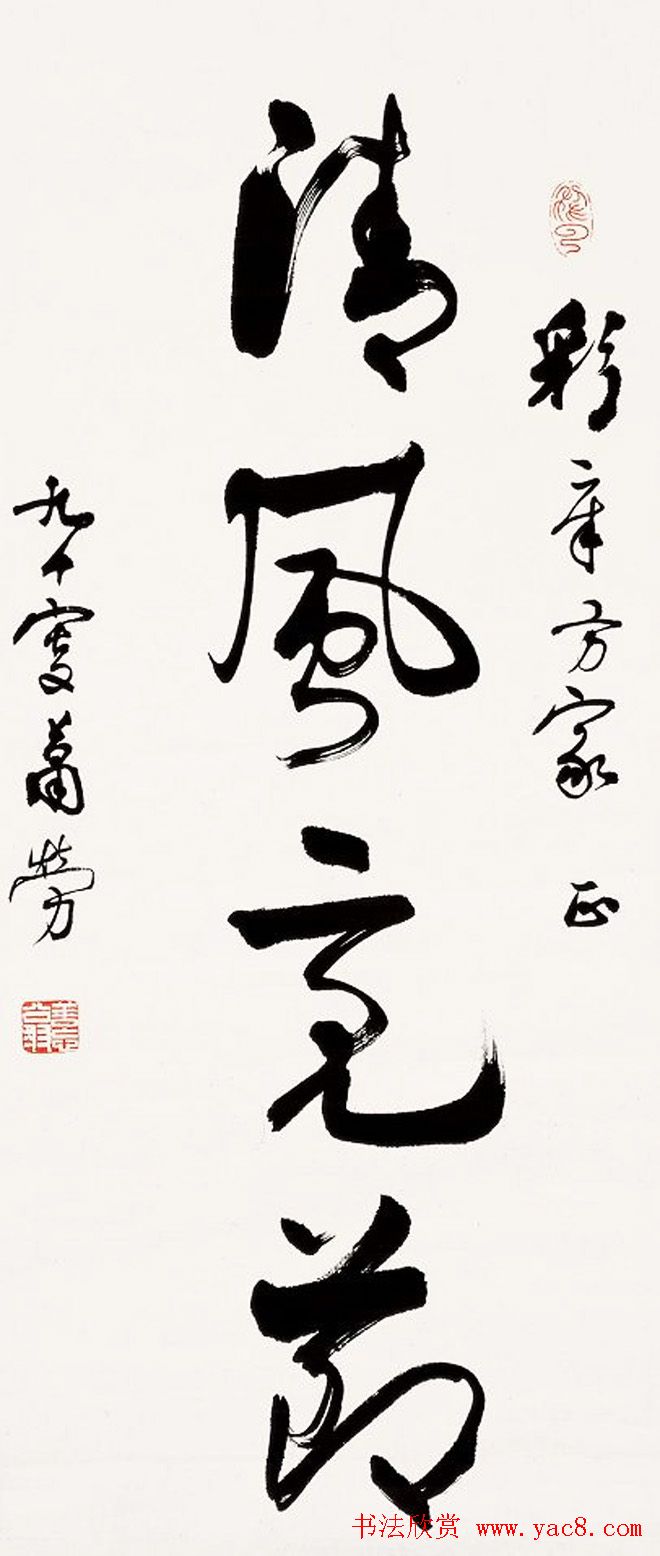 彩章方家正
清風亮節
九十叟蕭勞
书法欣赏 www.yac8.com